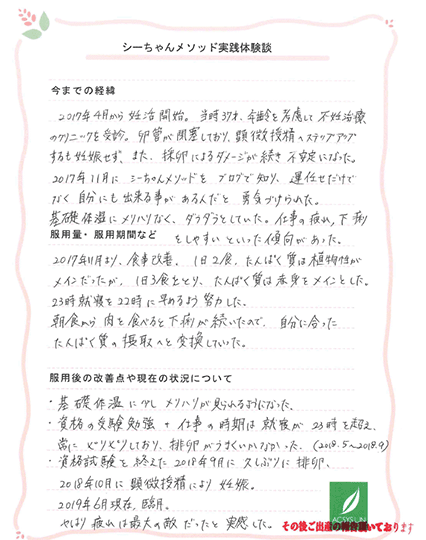 シーちゃんメソッド実践体験談
今までの経緯
2017年4月から妊活開始。当時37才、年齢を考慮して不妊治療
のクリニックを受診。卵管が閉塞しており、顕微授精へステップアップ
するも妊娠せず、また、採卵によるダメージが続き不安定になった。
2017年11月に シーちゃんメソッドを ブログで知り、運任せだけで
なく自分にも出来る事があるんだと 勇気づけられた。
基礎体温にメリハリなく、ダラダラとしていた。仕事の疲れ,下痢
をしやすいといった傾向があった。
服用量・服用期間など
2017年11月より、食事改善。1日2食、たんぱく質は植物性が
メインだったが、1日3食をとり、たんぱく質は赤身をメインとした。
23時就寝を22時に早めるよう努力した。
朝食から肉を食べると下痢が続いたので、自分に合った
たんぱく質の摂取へと変換していった。
服用後の改善点や現在の状況について
・基礎体温に少しメリハリが見られるようになった。
・資格の受験勉強 + 仕事の時期は就寝が23時を超え、
常にピリピリしており、排卵がうまくいかなかった。(2018.5～2018.9)
・資格試験を終えた2018年9月に久しぶりに排卵、
2018年10月に顕微授精により妊娠。
2019年6月現在,臨月。
やはり疲れは最大の敵だったと実感した。
その後ご出産の報告頂いております